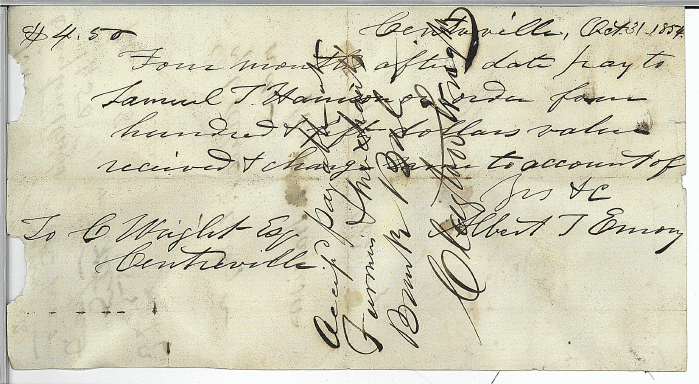 $4.50 Centreville, Oct. 31 1854
Four months after date pay to
Samuel T Harrison or order four
hundred & fifty dollars value
recieved & charge same to account of
yrs &c
To C Wright Esq Albert T Emory
Centreville
Accept payable at
Farmers &
Bank Balt
Clayton Wright